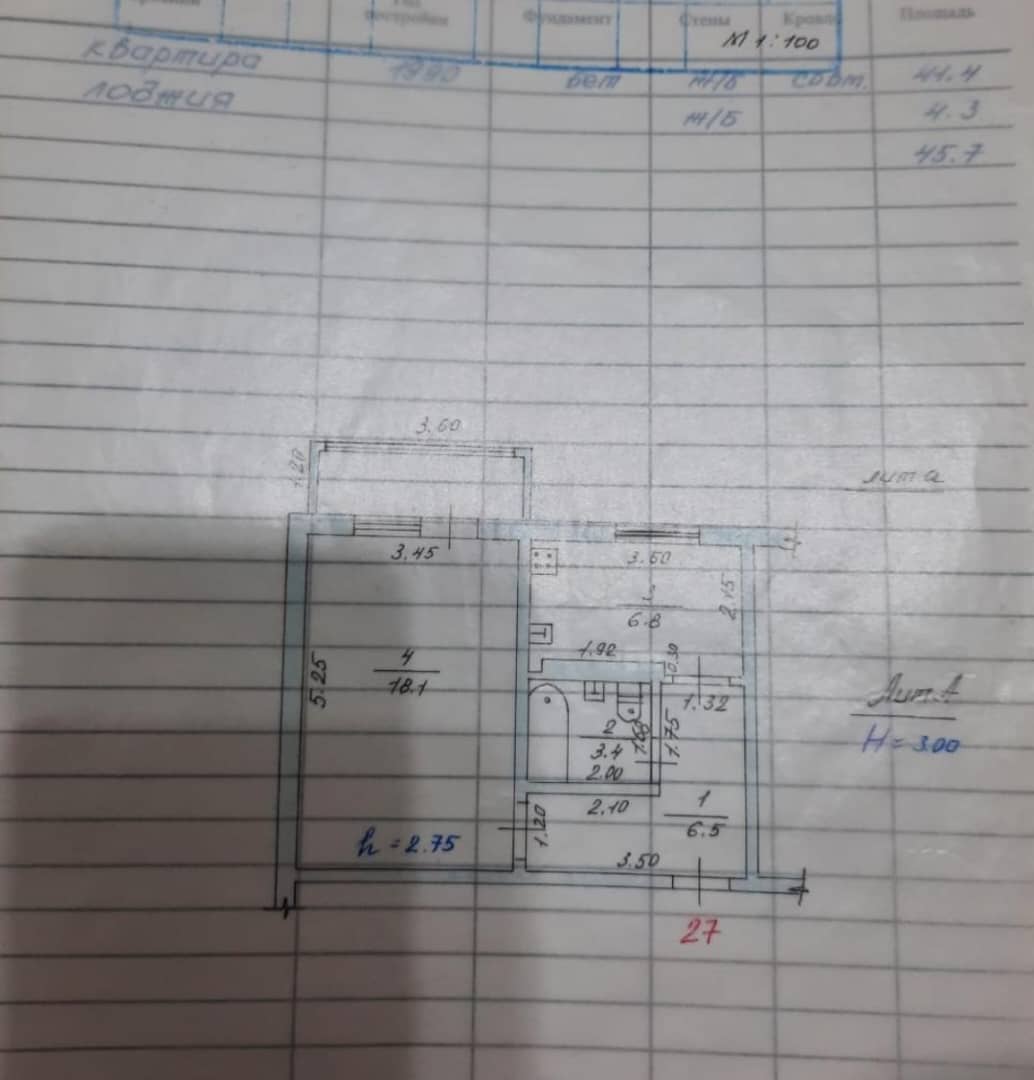 постройки Фундамент Стены Кровля Площадь
М 1:100
квартира 1990 бет ж/б совм. 41.4
лоджия ж/б 4.3
45.7
3.60
1.20
лит а
3.45
3.60
2.15
6.8
1.92
0.30
4
18.1
5.25
1.32
Лит А
Н = 3.00
2
3.4
1.75
2.00
2.10
1
6.5
1.20
h = 2.75
3.50
27